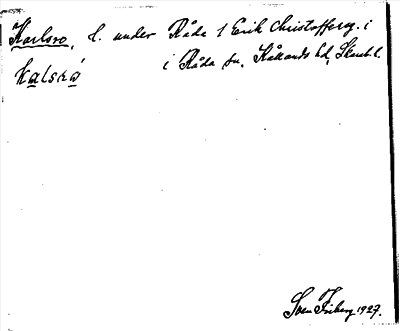 Karlsro, l. under Råda 1 Erik Christoffersg. i
i Råda sn. Kållands hd, Skarab. l.
kalsrå
Sven Friberg 1927.